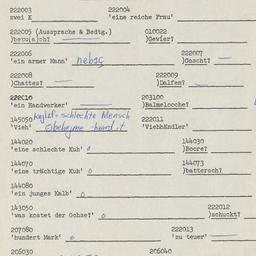 222003 222004
zwei K 'eine reiche Frau'
222005 (Aussprache & Bedtg.) 010022
)betu(a)ch? )Gevier?
222006 222007
'ein armer Mann' )Gascht?
222008 222009
)Chattes? )Dalfen?
222010 203100
'ein Handwerker' )Balmelooche?
schlechte Mensch
145050 222011
'Vieh' 'Viehhändler'
144020 144030
'eine schlechte Kuh' o )Boore?
144070 144073
'eine trächtige Kuh' o )battersch?
144080
'ein junges Kalb' o
143050 222012
'was kostet der Ochse?' o )schuckt?
207080 222013
'hundert Mark' o 'zu teuer'
206030 206040